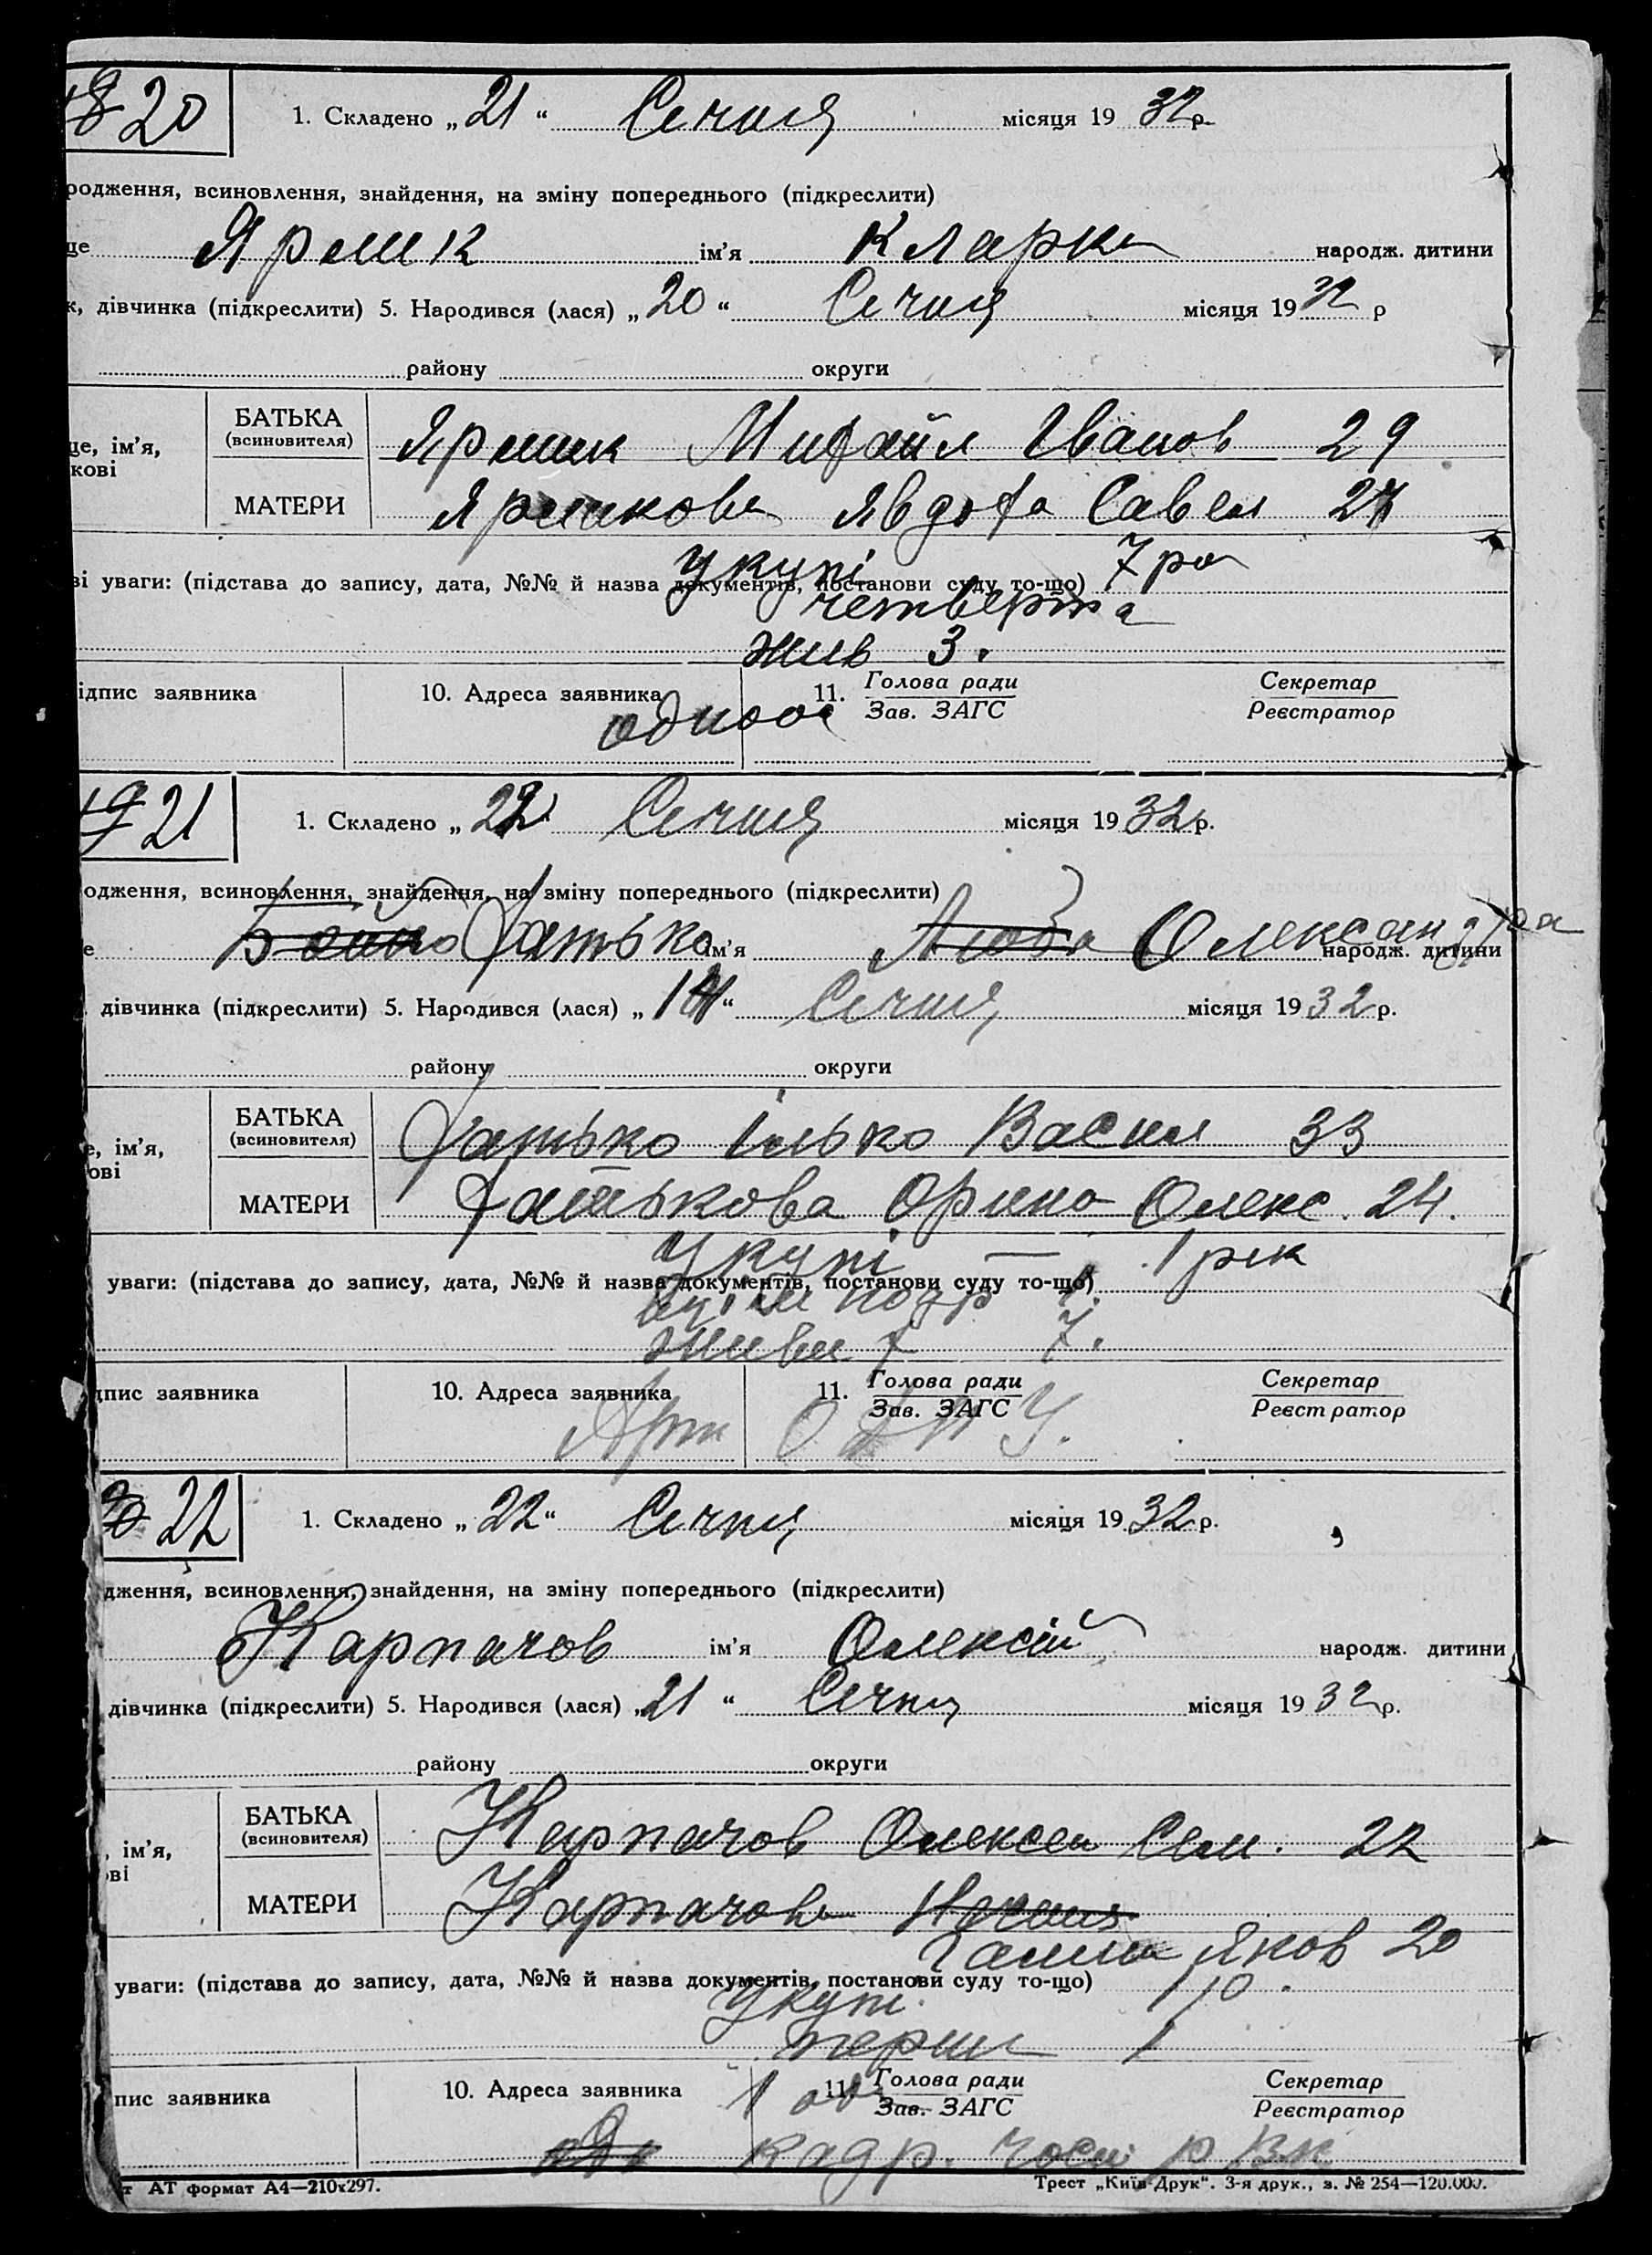 20
1. Складено „ 21 “ Січня місяця 19 32 р.
родження, всиновлення, знайдення, на зміну попереднього (підкреслити)
це Яремик ім’я Кларка народж. дитини
к, дівчинка (підкреслити) 5. Народився (лася) „ 20 “ Січня місяця 19 32 р
району округи
БАТЬКА
(всиновителя)
Михайл Іванов 29
це, ім’я,
кові
МАТЕРИ
Явдоха Савел 27
Укупі 7 ро
ві уваги: (підстава до запису, дата, №№ й назва документів, постанови суду то-що)
четверта
жив 3.
ідпис заявника 10. Адреса заявника 11. Голова ради Секретар
Зав. ЗАГС Реєстратор
21
1. Складено „ 22 Січня місяця 19 32 р.
одження, всиновлення, знайдення, на зміну попереднього (підкреслити)
е Бойко Фатько ім’я Люба Олександра народж. дитини
дівчинка (підкреслити) 5. Народився (лася) „ “ Січня місяця 19 32 р.
району округи
БАТЬКА
(всиновителя)
Фатько Ілько Васил 33
е, ім’я,
ові
МАТЕРИ
Фатькова Орина Олекс. 24.
Укупі — 1 рік
уваги: (підстава до запису, дата, №№ й назва документів, постанови суду то-що)
живе 7.
дпис заявника 10. Адреса заявника 11. Голова ради Секретар
Зав. ЗАГС Реєстратор
Арт
22
1. Складено „ 22 “ Січня місяця 19 32 р.
дження, всиновлення, знайдення, на зміну попереднього (підкреслити)
Карпачов ім’я Олексій народж. дитини
дівчинка (підкреслити) 5. Народився (лася) „ 21 “ Січня місяця 19 32 р.
району округи
БАТЬКА
(всиновителя)
Карпачов Олексей Сем. 22
, ім’я,
ові
МАТЕРИ
Карпачова
Ганна Яков 20
уваги: (підстава до запису, дата, №№ й назва документів, постанови суду то-що)
Укупі
перша 1
пис заявника 10. Адреса заявника 1 11. Голова ради Секретар
Зав. ЗАГС Реєстратор
кадр.
т АТ формат А4—210х297. Трест „Київ-Друк“. 3-я друк., з. № 254—120.000.